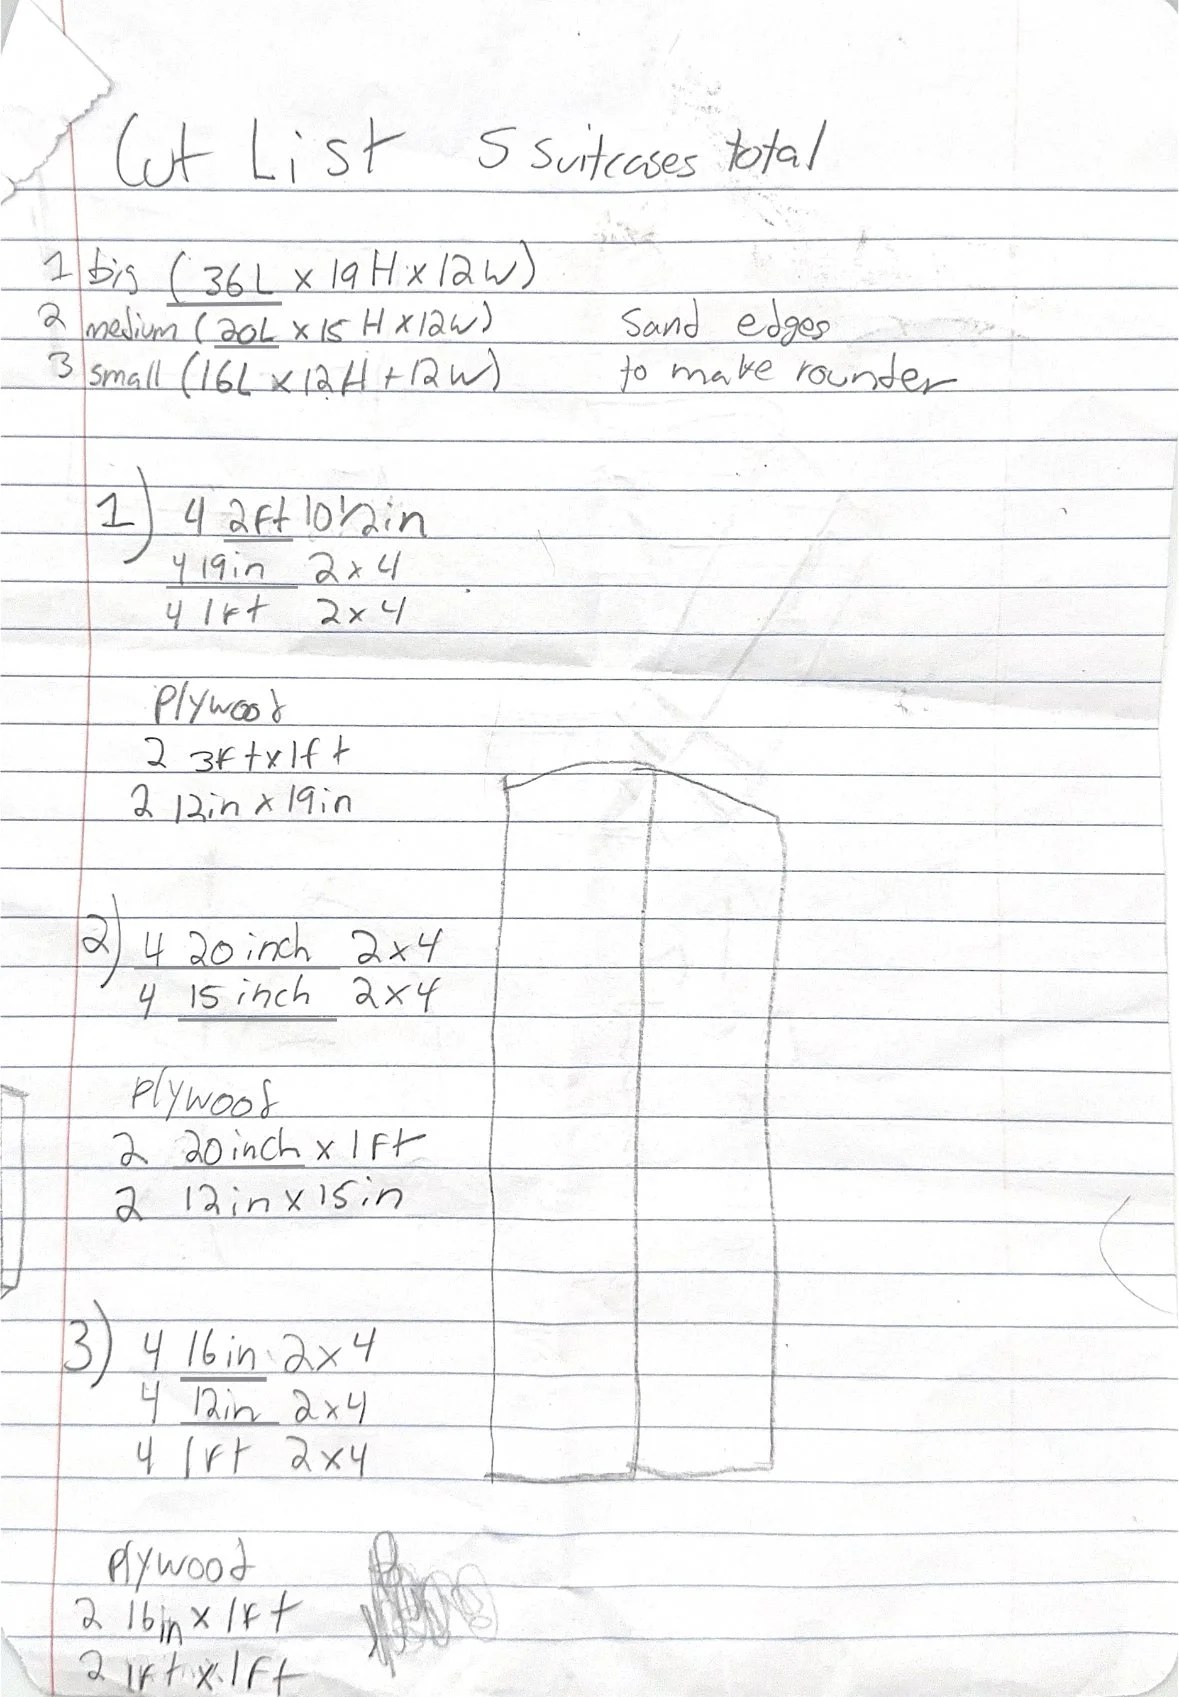 Cut List 5 suitcases total
1 big (36L x 19H x 12W)
2 medium (20L x 15H x 12W)
3 small (16L x 12H + 12W)
Sand edges
to make rounder
1) 4 2ft 10 1/2in
4 19in 2x4
4 1ft 2x4
Plywood
2 3ft x 1ft
2 12in x 19in
2) 4 20 inch 2x4
4 15 inch 2x4
Plywood
2 20 inch x 1ft
2 12in x 15in
3) 4 16in 2x4
4 12in 2x4
4 1ft 2x4
Plywood
2 16in x 1ft
2 1ft x 1ft